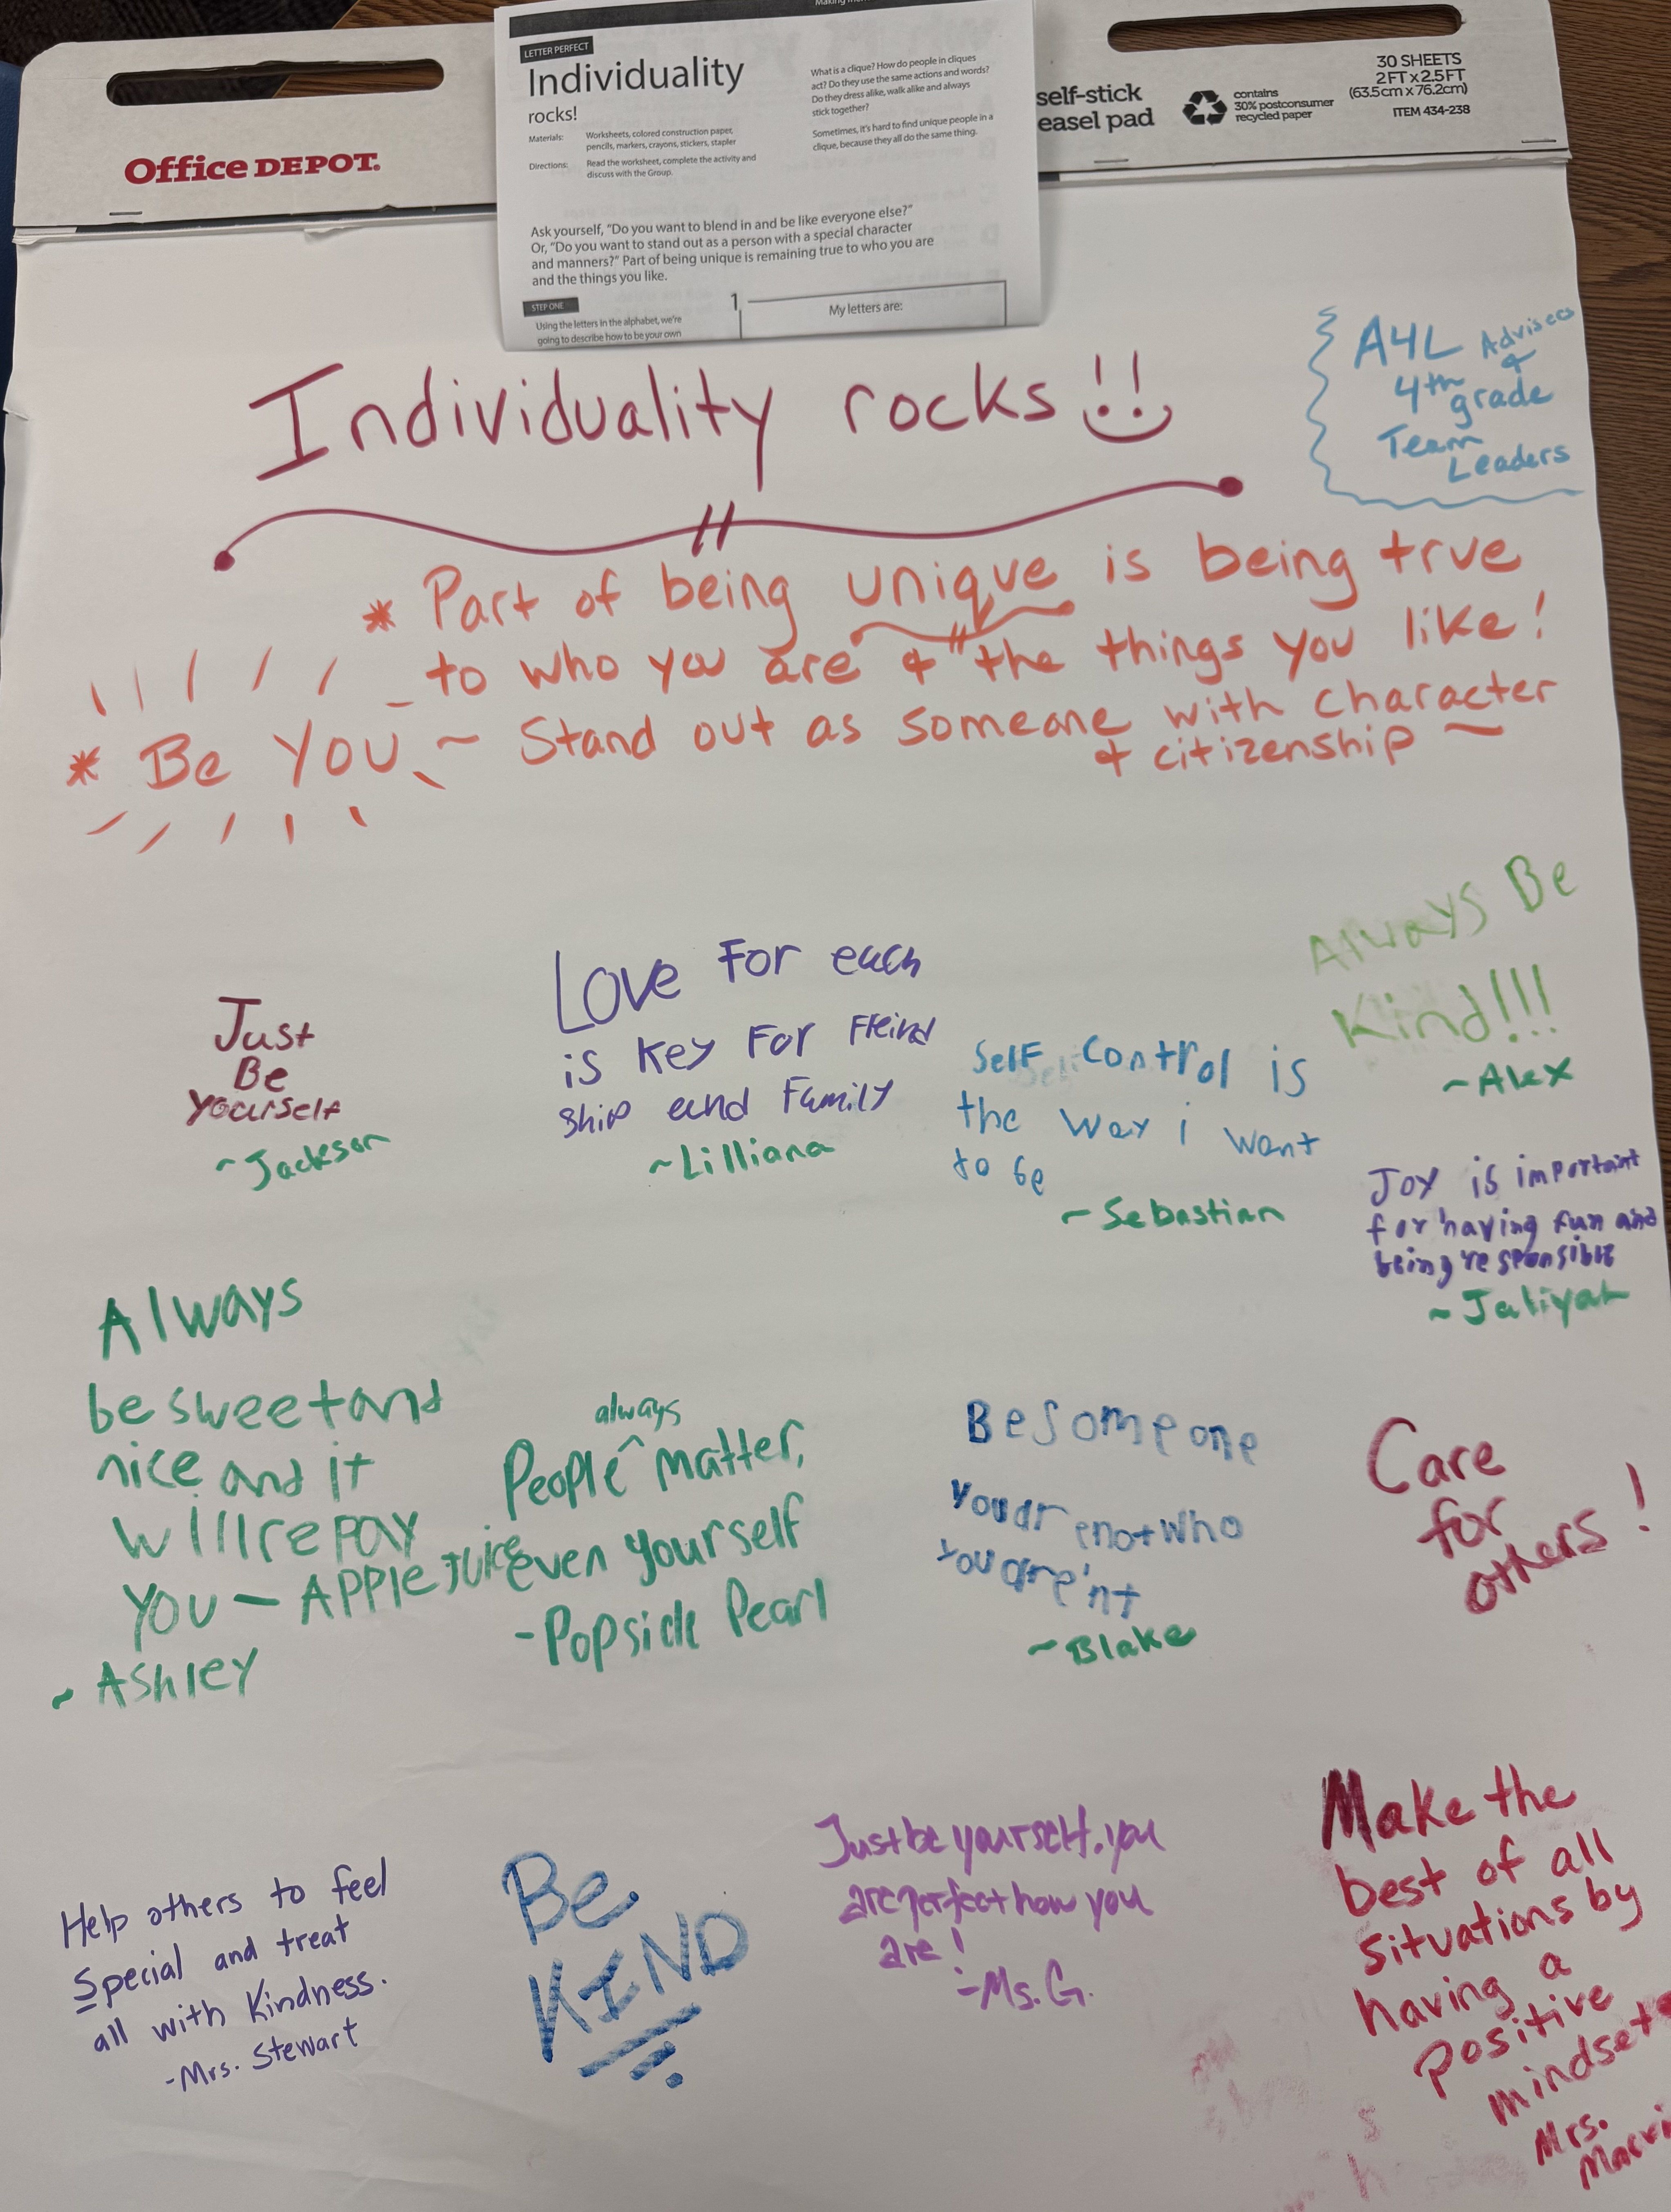 Office DEPOT.
LETTER PERFECT
Individuality
rocks!
Materials: Worksheets, colored construction paper,
pencils, markers, crayons, stickers, stapler
Directions: Read the worksheet, complete the activity and
discuss with the Group.
What is a clique? How do people in cliques
act? Do they use the same actions and words?
Do they dress alike, walk alike and always
stick together?
Sometimes, it's hard to find unique people in a
clique, because they all do the same thing.
Ask yourself, "Do you want to blend in and be like everyone else?"
Or, "Do you want to stand out as a person with a special character
and manners?" Part of being unique is remaining true to who you are
and the things you like.
STEP ONE
Using the letters in the alphabet, we're
going to describe how to be your own
1
My letters are:
self-stick
easel pad
contains
30% postconsumer
recycled paper
30 SHEETS
2FT x 2.5FT
(63.5cm x 76.2cm)
ITEM 434-238
Individuality rocks!!
A4L Advisees
+
4th grade
Team
Leaders
* Part of being unique is being true
to who you are + the things you like!
* Be You ~ Stand out as someone with character
+ citizenship ~
Just
Be
yourself
~Jackson
Love For each
is key For Freind
ship and Family
~Lilliana
Self control is
the way i want
to be
~Sebastian
Always Be
Kind!!!
~Alex
Joy is important
for having fun and
being responsible
~Jaliyah
Always
be sweet and
nice and it
will repay
you - APPle Juice
~Ashley
always
People ^ matter,
even yourself
-Popsicle Pearl
Be someone
you are not who
you are'nt
~Blake
Care
for
others!
Help others to feel
Special and treat
all with Kindness.
-Mrs. Stewart
Be
KIND
Just be yourself. you
are perfect how you
are!
-Ms. G.
Make the
best of all
situations by
having a
positive
mindset
Mrs.